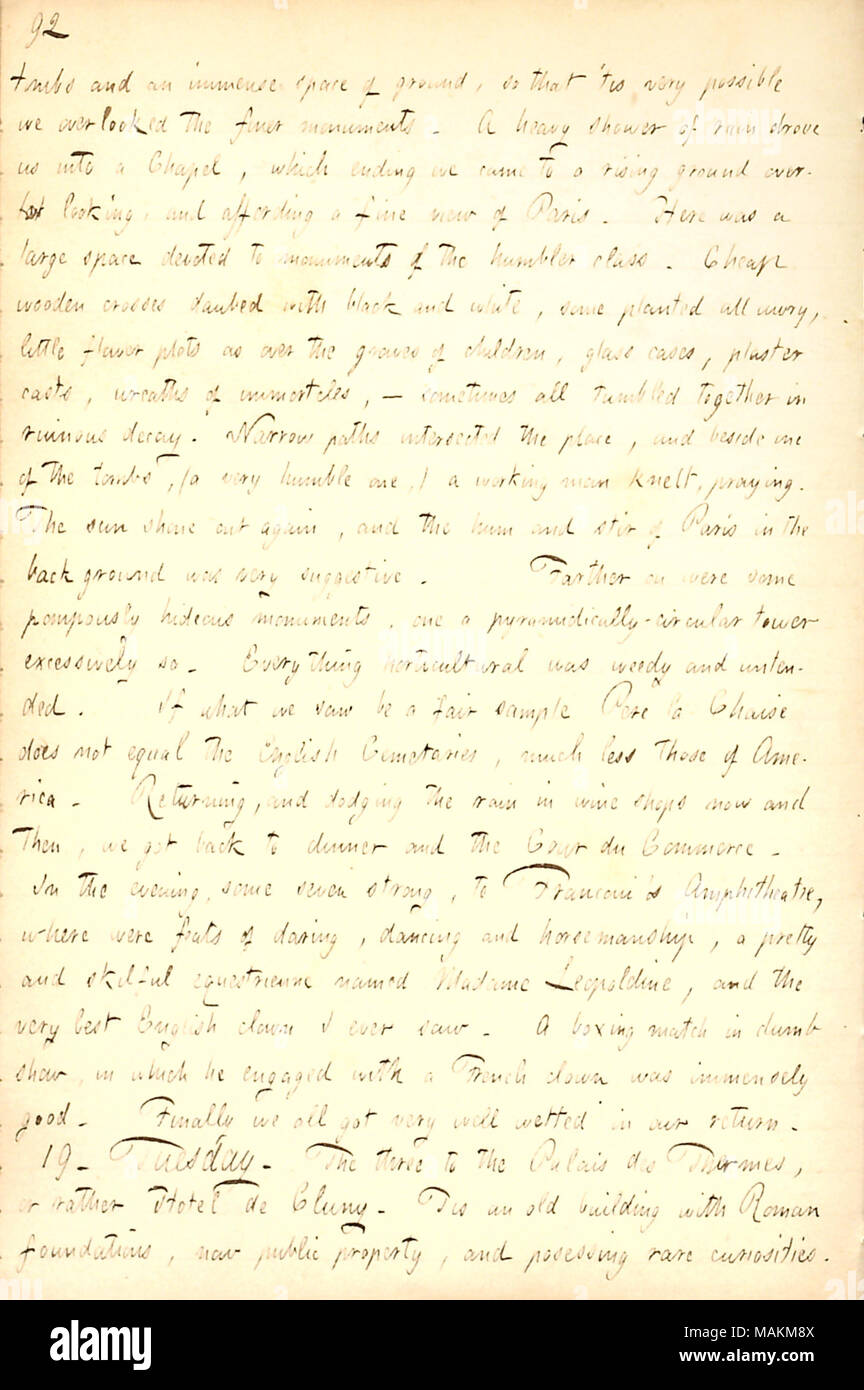 92
tombs and an immense space of ground, so that 'tis very possible
we overlooked the finer monuments. A heavy shower of rain drove
us into a Chapel, which ending we came to a rising ground over-
looking, and affording a fine view of Paris. Here was a
large space devoted to monuments of the humbler class. Cheap
wooden crosses daubed with black and white, some planted all awry,
little flower plots as over the graves of children, glass cases, plaster
casts, wreaths of immortelles, — sometimes all tumbled together in
ruinous decay. Narrow paths intersected the place, and beside one
of the tombs, (a very humble one,) a working man knelt, praying.
The sun shone out again, and the hum and stir of Paris in the
back ground was very suggestive. Farther on were some
pompously hideous monuments, one a pyramidically-circular tower
excessively so. Everything horticultural was weedy and unten-
ded. If what we saw be a fair sample Pere la Chaise
does not equal the English Cemetaries, much less those of Ame-
rica. Returning, and dodging the rain in wine shops now and
then, we got back to dinner and the Cour du Commerce.
In the evening, some seven strong, to Franconi's Amphitheatre,
where were feats of daring, dancing and horsemanship, a pretty
and skilful equestrienne named Madame Leopoldine, and the
very best English clown I ever saw. A boxing match in dumb
show, in which he engaged with a French clown was immensely
good. Finally we all got very well wetted in our return.
19. Tuesday. The three to the Palais des Thermes,
or rather Hotel de Cluny. Tis an old building with Roman
foundations, now public property, and posessing rare curiosities.
alamy
Image ID: MAKM8X
www.alamy.com